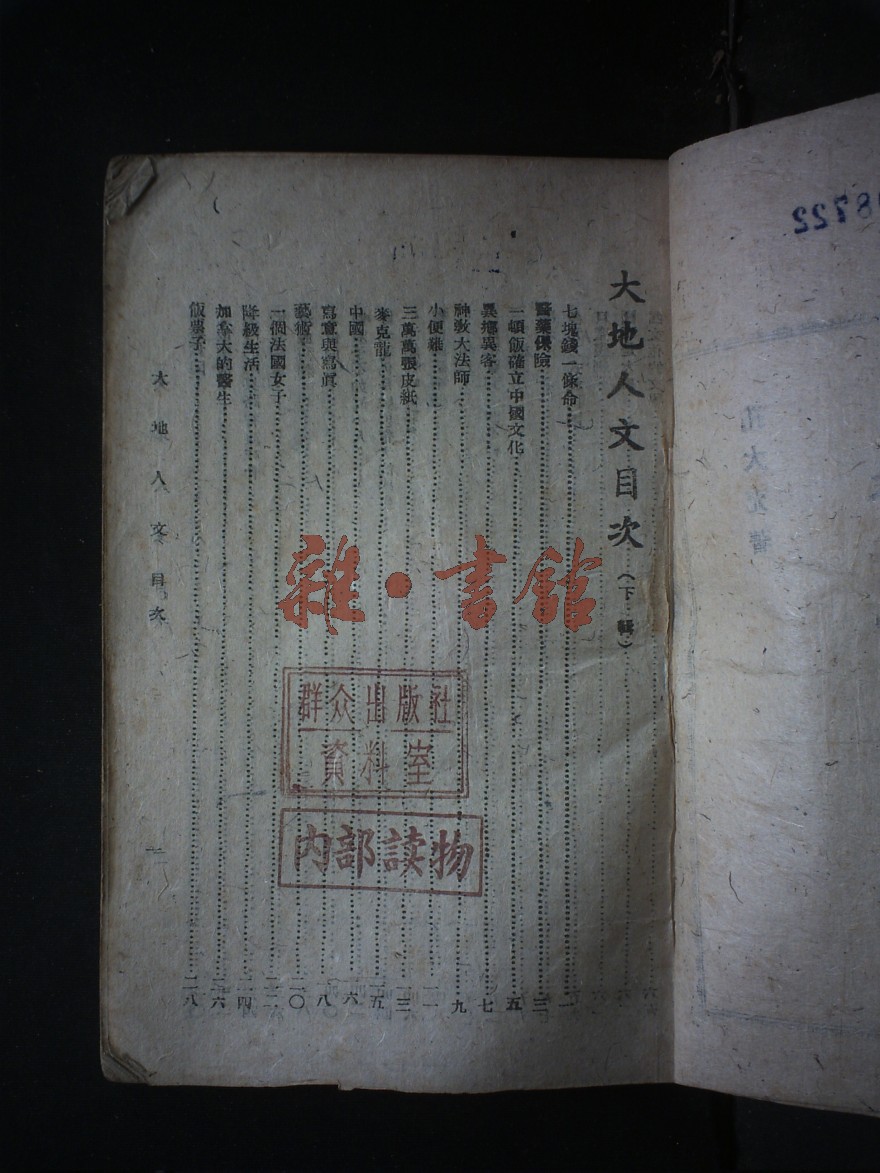 大地人文目次（下輯）
七塊錢一條命 一
醫藥保險 三
一頓飯確立中國文化 五
異鄉異客 七
神敎大法師 九
小便雞 一一
三萬萬張皮紙 一三
麥克龍 一五
中國 一六
寫意與寫眞 一八
藝術 二〇
一個法國女子 二二
降級生活 二四
加拿大的醫生 二六
飯票子 二八
大地人文目次
一
雜·書館
群众出版社
資料室
内部读物
8722